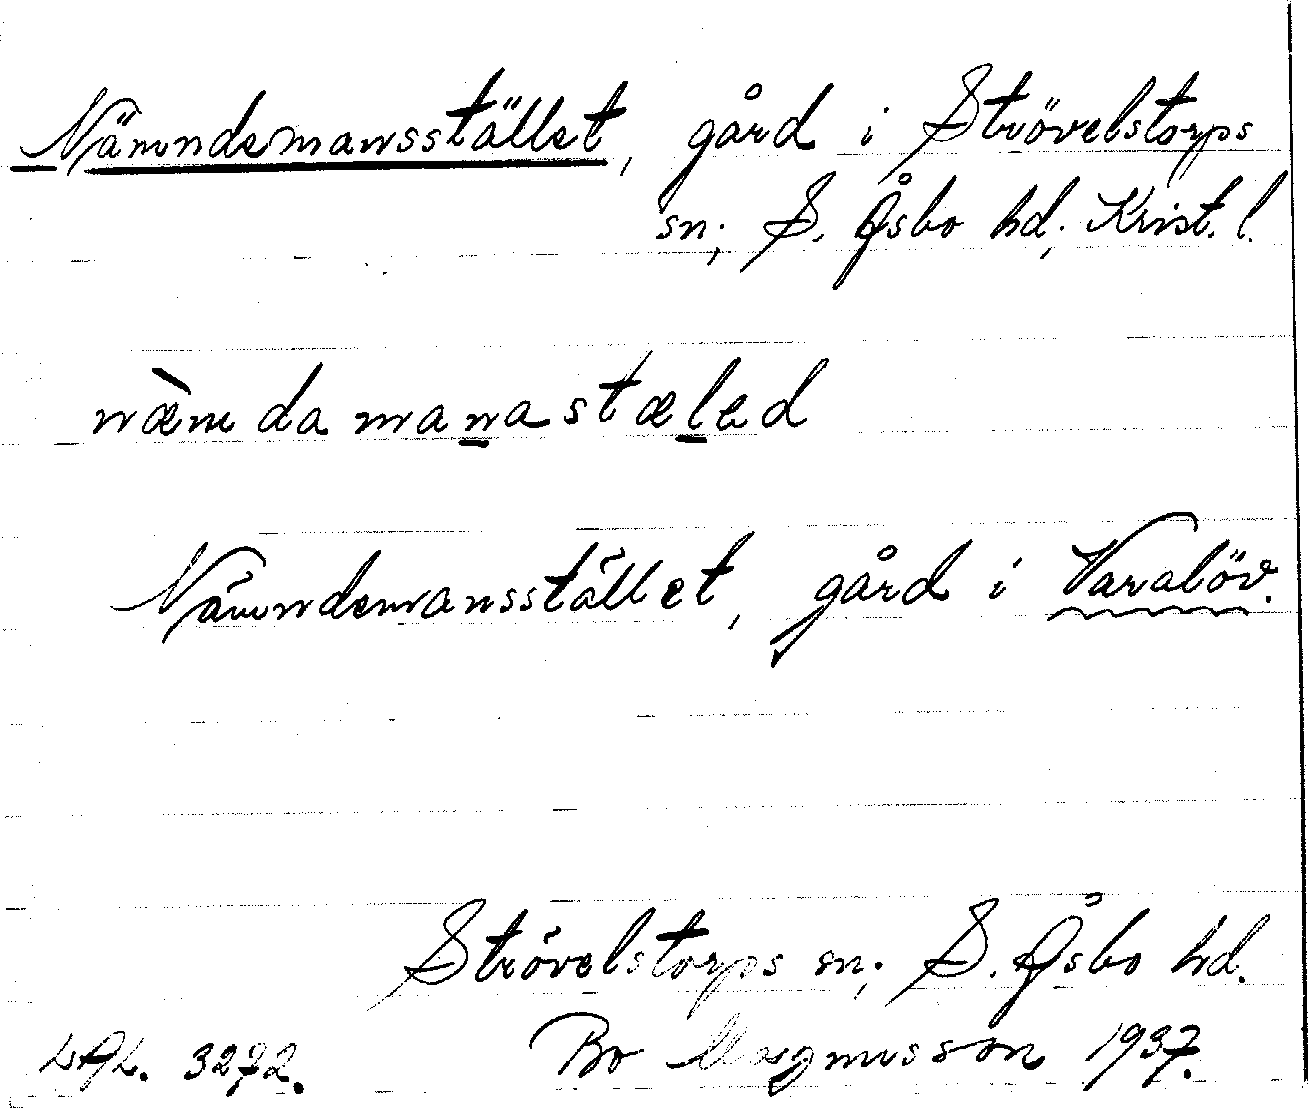 Nämndemansstället, gård i Strövelstorps
sn; S. Åsbo hd; Krist. l.
næ̀mdamanastæled
Nämndemansstället, gård i Varalöv.
Strövelstorps sn; S. Åsbo hd.
LAL. 3272. Bo Magnusson 1937.